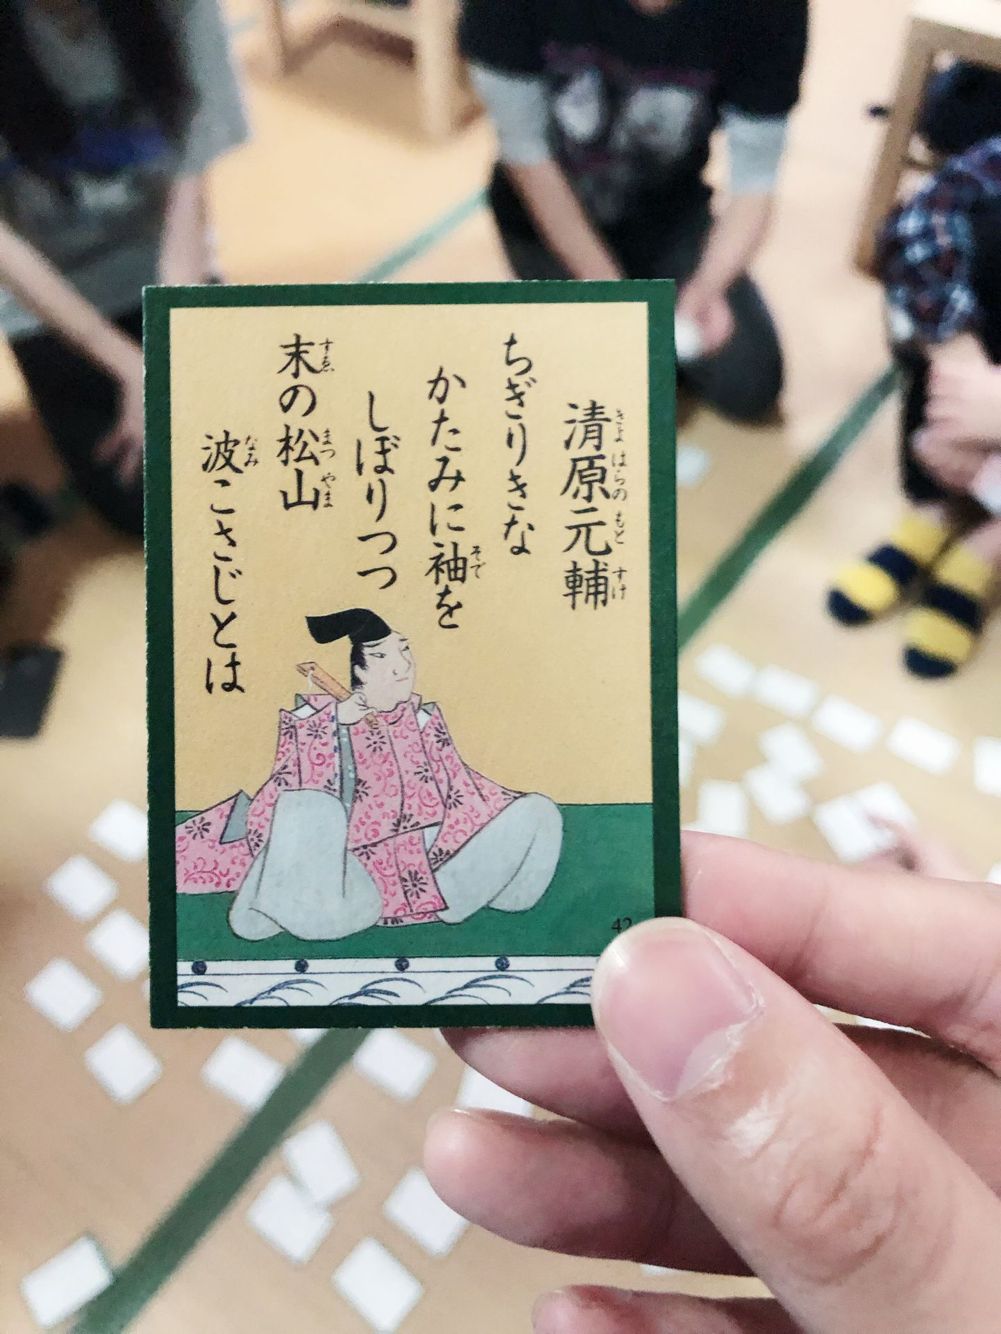 清原元輔
きよはらのもとすけ
ちぎりきな
かたみに袖を
そで
しぼりつつ
末の松山
すゑまつやま
波こさじとは
なみ
42